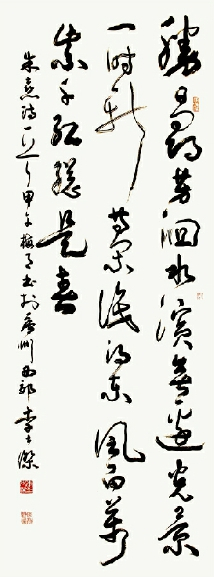 胜日寻芳泗水滨无边光景
一时新等闲识得东风面万
紫千红总是春
朱熹诗一首甲午梅月书于广州西郊李士杰